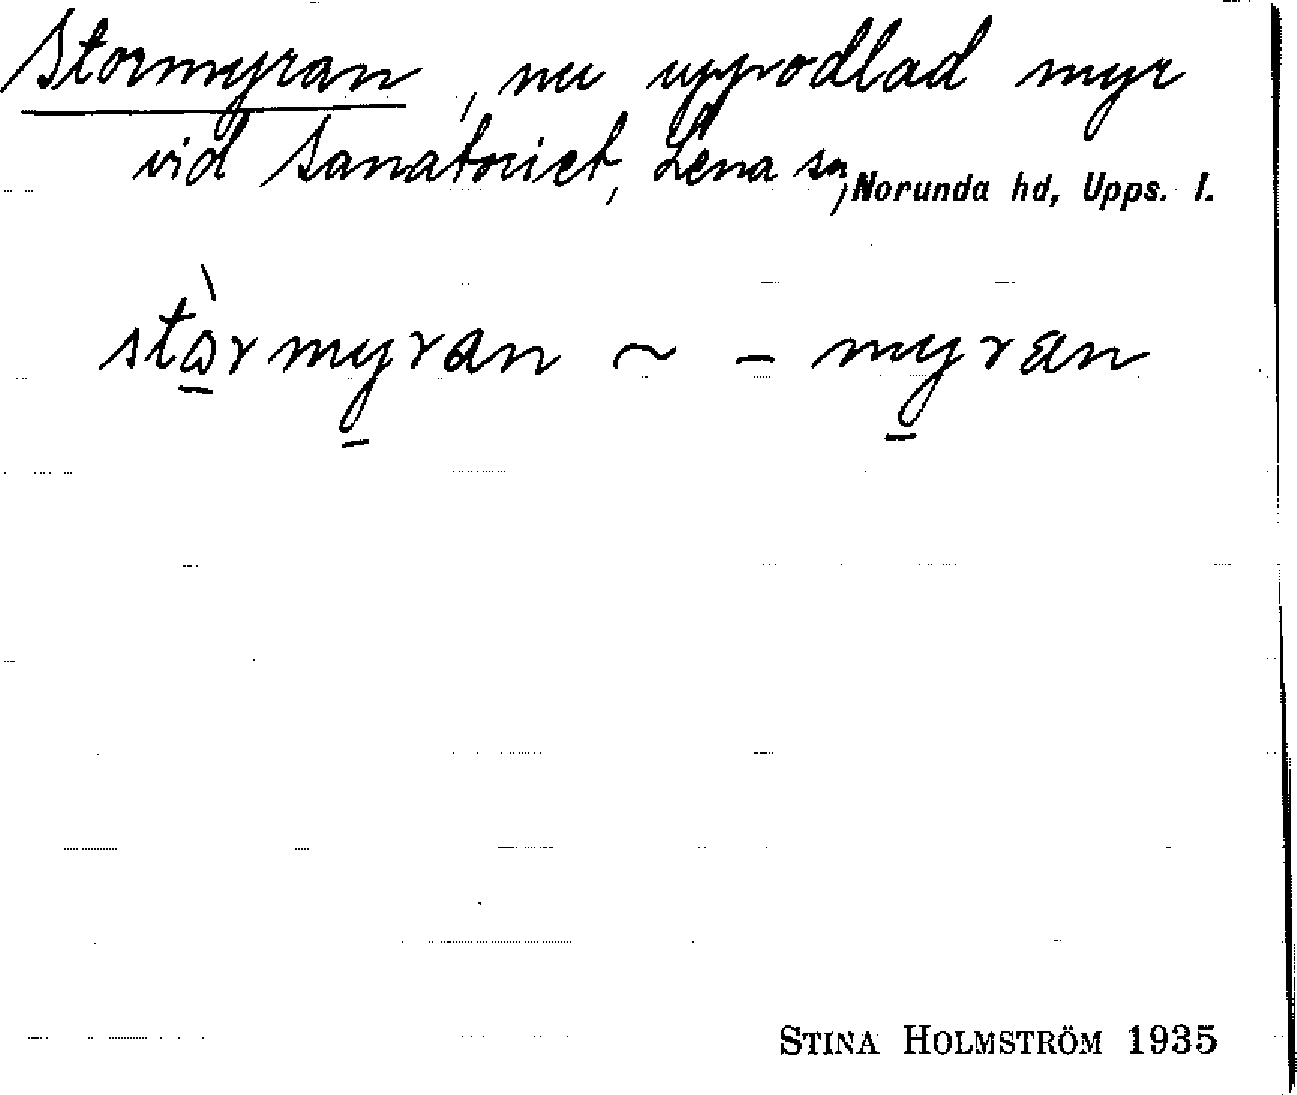 Stormyran, nu uppodlad myr
vid Sanatoriet, Lena sn, Norunda hd, Upps. l.
stò̱rmy̱ran ~ - my̱ran
STINA HOLMSTRÖM 1935